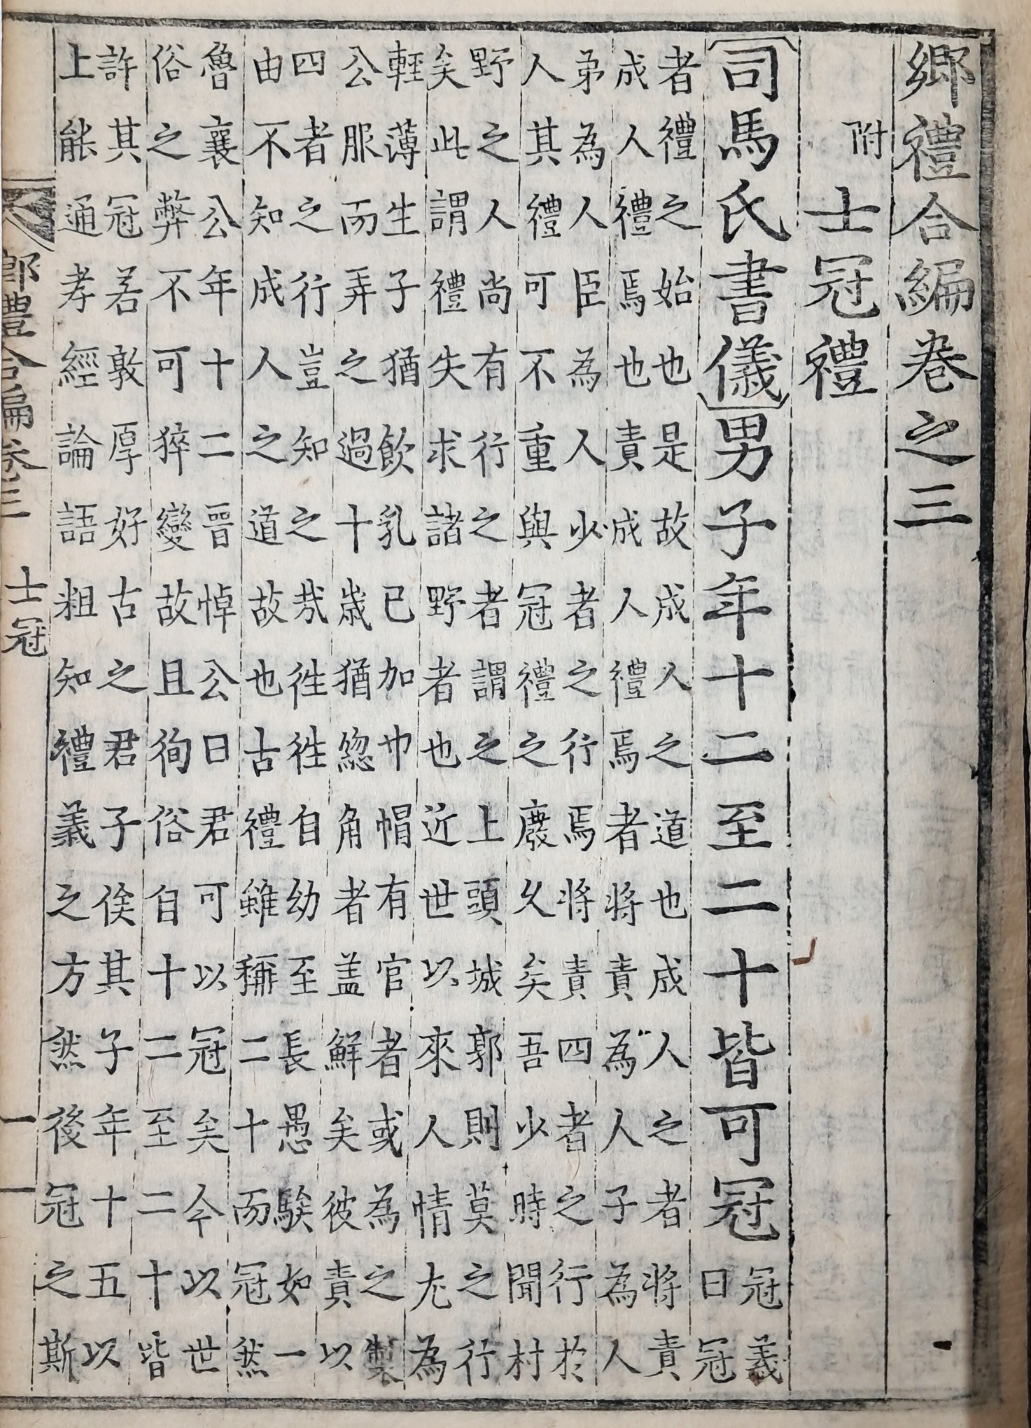 鄉禮合編卷之三
附
士冠禮
司馬氏書儀男子年十二至二十皆可冠
冠義
曰冠
者禮之始也是故成人之道也成人之者將責
成人禮焉也責成人禮焉者將責為人子為人
弟為人臣為人少者之行焉將責四者之行於
人其禮可不重與冠禮之廢久矣吾少時聞村
野之人尚有行之者謂之上頭城郭則莫之行
矣此謂禮失求諸野者也近世以來人情尤為
輕薄生子猶飲乳已加巾帽有官者或為之製
公服而弄之過十歲猶緫角者盖鮮矣彼責以
四者之行豈知之㦲徃徃自幼至長愚騃如一
由不知成人之道故也古禮雖稱二十而冠然
魯襄公年十二晉悼公曰君可以冠矣今以世
俗之弊不可猝變故且徇俗自十二至二十皆
許其冠若敦厚好古之君子俟其子年十五以
上能通孝經論語粗知禮義之方然後冠之斯
鄉禮合編卷三 士冠 一